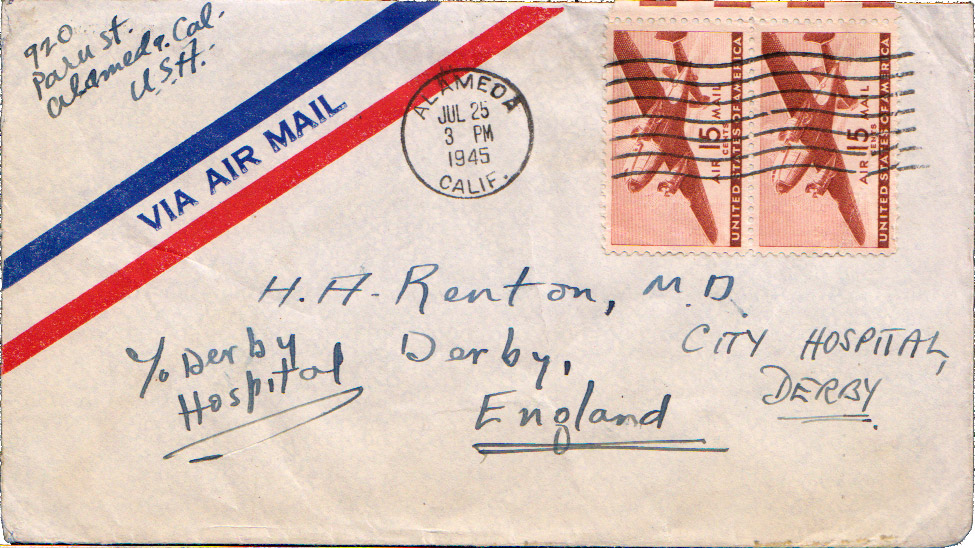 920
Paru St.
Alameda. Cal.
U.S.A.
VIA AIR MAIL
ALAMEDA
JUL 25
3 PM
1945
CALIF.
AIR 15 CENTS MAIL
UNITED STATES OF AMERICA
AIR 15 CENTS MAIL
UNITED STATES OF AMERICA
H. A. Renton, M.D.
c/o Derby
Hospital
Derby,
England
CITY HOSPITAL,
DERBY.